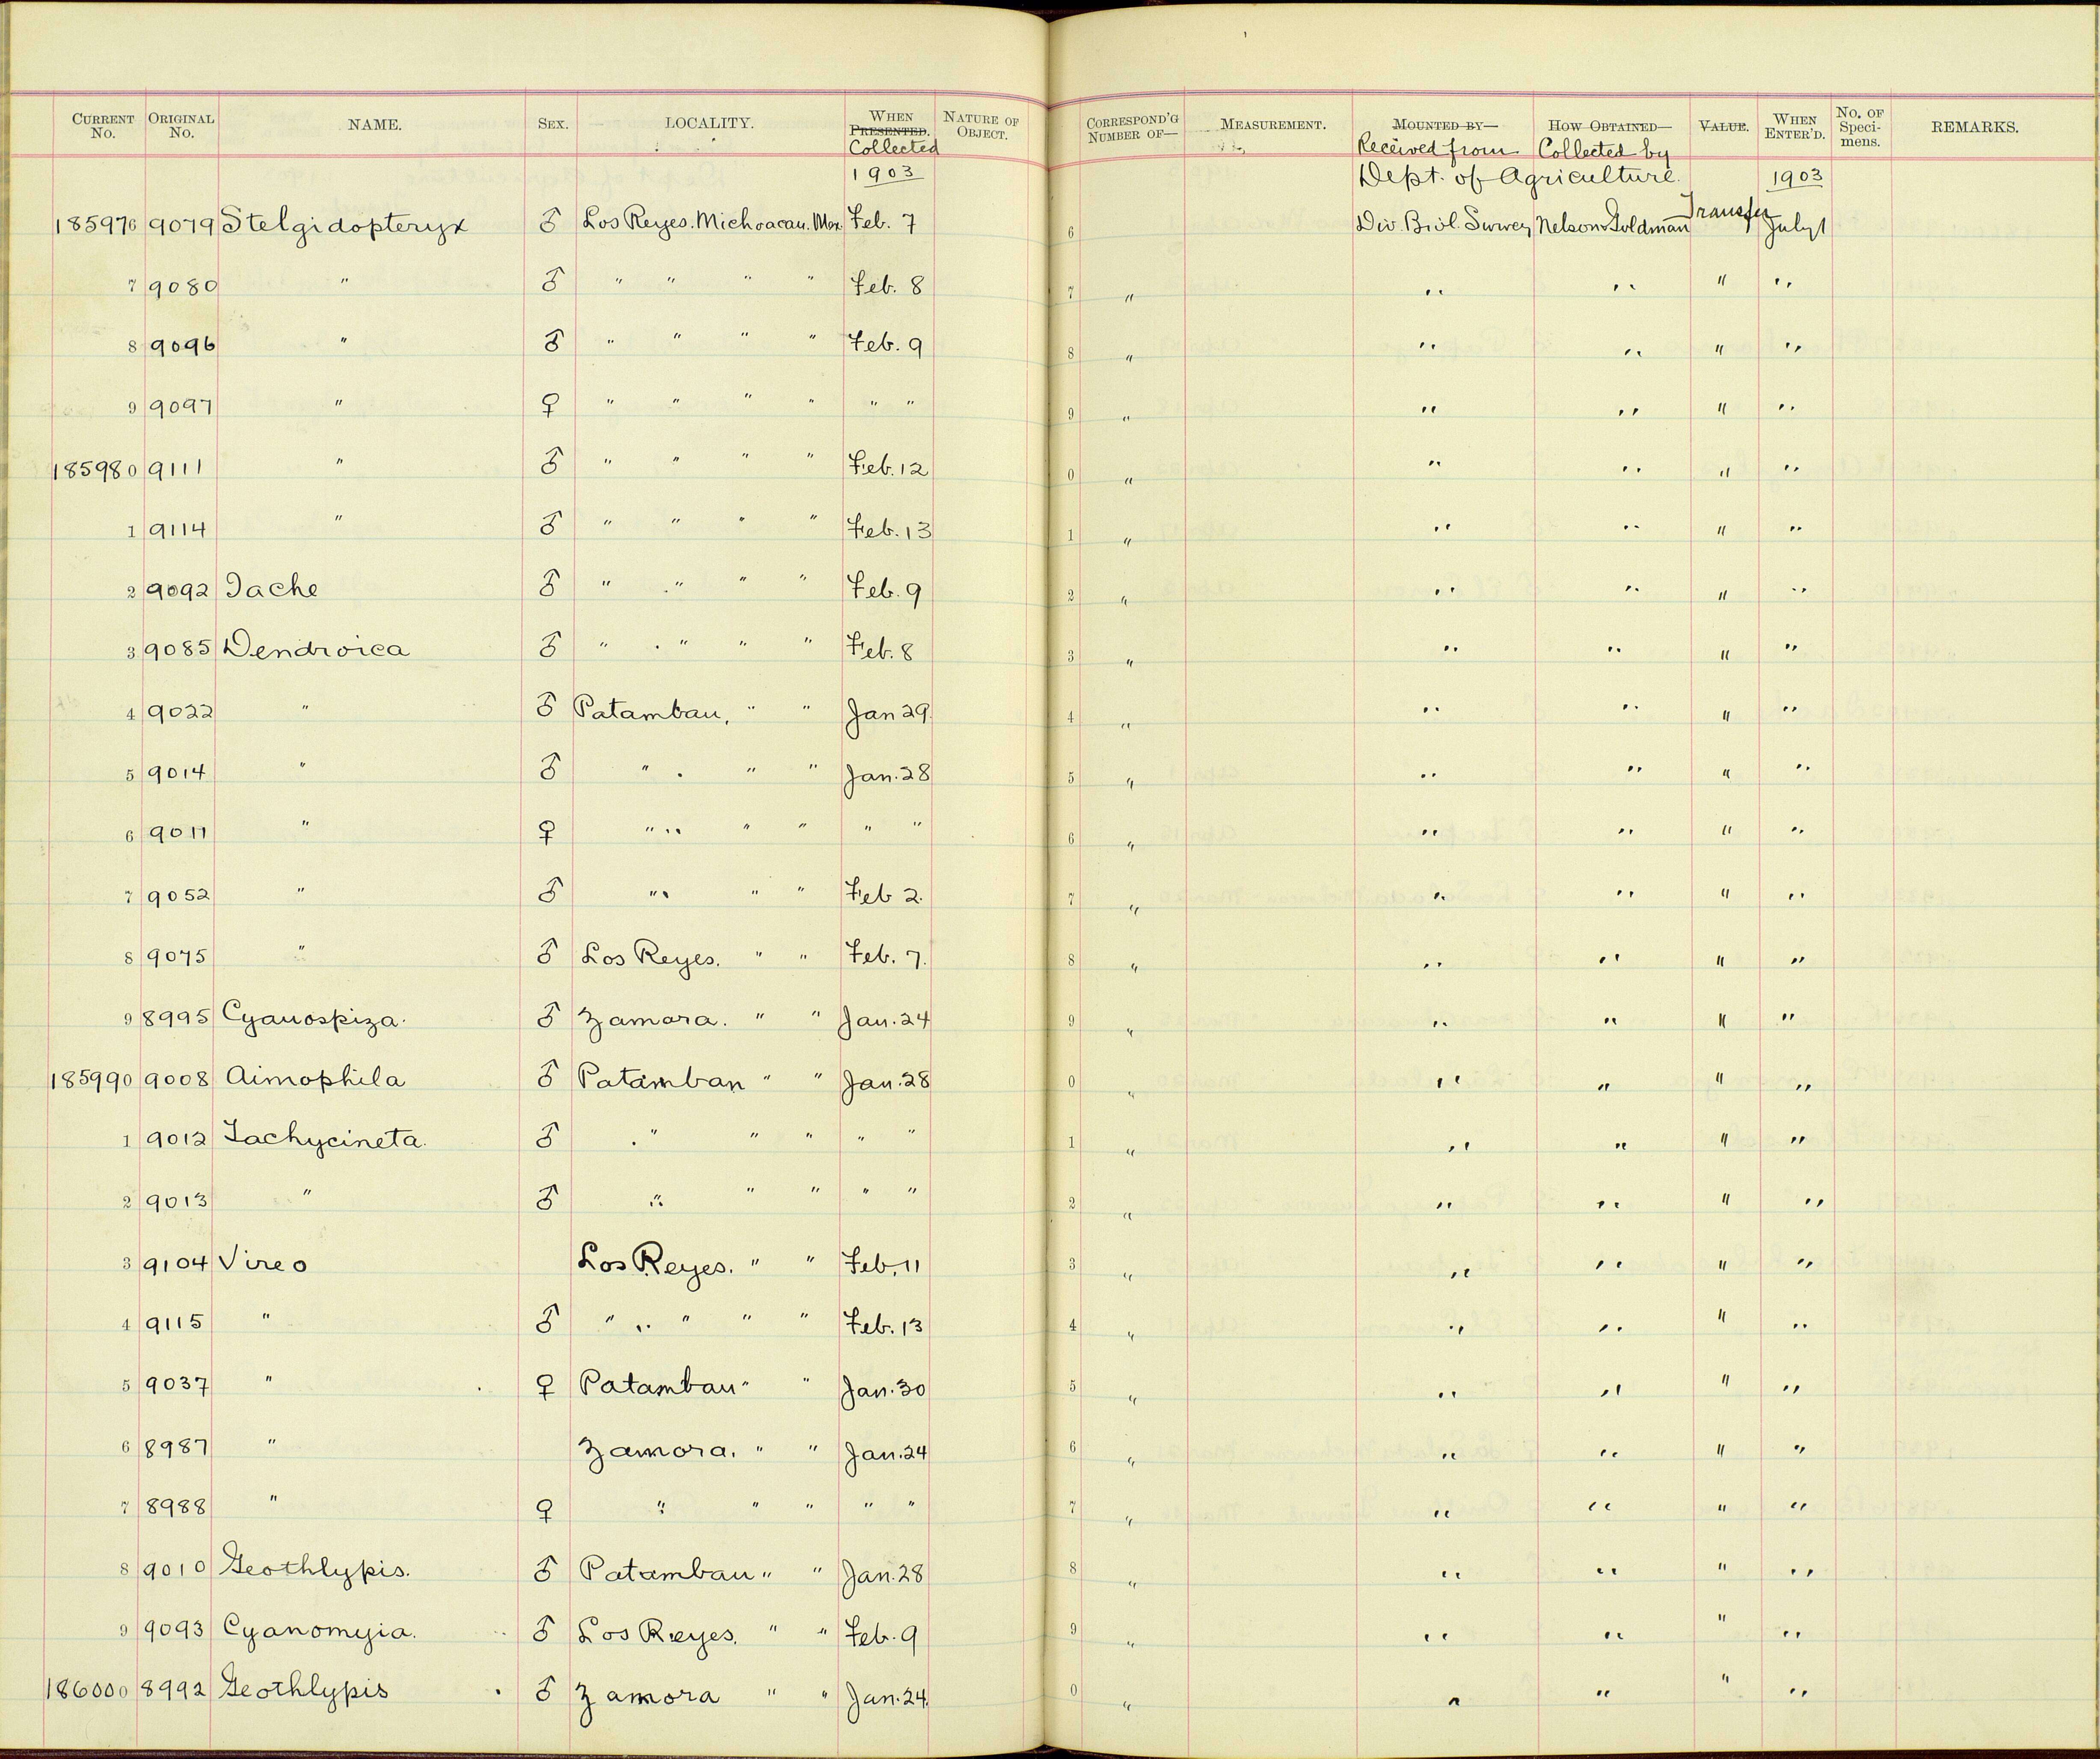 CURRENT No. ORIGINAL No. NAME. SEX. LOCALITY. WHEN PRESENTED. Collected NATURE OF OBJECT. CORRESPOND'G NUMBER OF— MEASUREMENT. MOUNTED BY— Received from HOW OBTAINED— Collected by VALUE. WHEN ENTER'D. No. OF Speci-mens. REMARKS.
1903 Dept. of Agriculture. 1903
185976 9079 Stelgidopteryx ♂ Los Reyes. Michoacan. Mex. Feb. 7 6 Div. Biol. Survey Nelson & Goldman Transfer July 1
7 9080 " ♂ " " " " Feb. 8 7 " " " " "
8 9096 " ♂ " " " " Feb. 9 8 " " " " "
9 9097 " ♀ " " " " " " 9 " " " " "
185980 9111 " ♂ " " " " Feb. 12 0 " " " " "
1 9114 " ♂ " " " " Feb. 13 1 " " " " "
2 9092 Iache ♂ " " " " Feb. 9 2 " " " " "
3 9085 Dendroica ♂ " " " " Feb. 8 3 " " " " "
4 9022 " ♂ Patamban, " " Jan 29. 4 " " " " "
5 9014 " ♂ " " " Jan. 28 5 " " " " "
6 9011 " ♀ " " " " " 6 " " " " "
7 9052 " ♂ " " " Feb 2. 7 " " " " "
8 9075 " ♂ Los Reyes. " " Feb. 7. 8 " " " " "
9 8995 Cyanospiza. ♂ Zamora. " " Jan. 24 9 " " " " "
185990 9008 Aimophila ♂ Patamban " " Jan. 28 0 " " " " "
1 9012 Tachycineta. ♂ " " " " " 1 " " " " "
2 9013 " ♂ " " " " " 2 " " " " "
3 9104 Vireo Los Reyes. " " Feb. 11 3 " " " " "
4 9115 " ♂ " " " " Feb. 13 4 " " " " "
5 9037 " ♀ Patamban " " Jan. 30 5 " " " " "
6 8987 " Zamora. " " Jan. 24 6 " " " " "
7 8988 " ♀ " " " " " 7 " " " " "
8 9010 Geothlypis. ♂ Patamban " " Jan. 28 8 " " " " "
9 9093 Cyanomyia. ♂ Los Reyes. " " Feb. 9 9 " " " " "
186000 8992 Geothlypis ♂ Zamora " " Jan. 24. 0 " " " " "